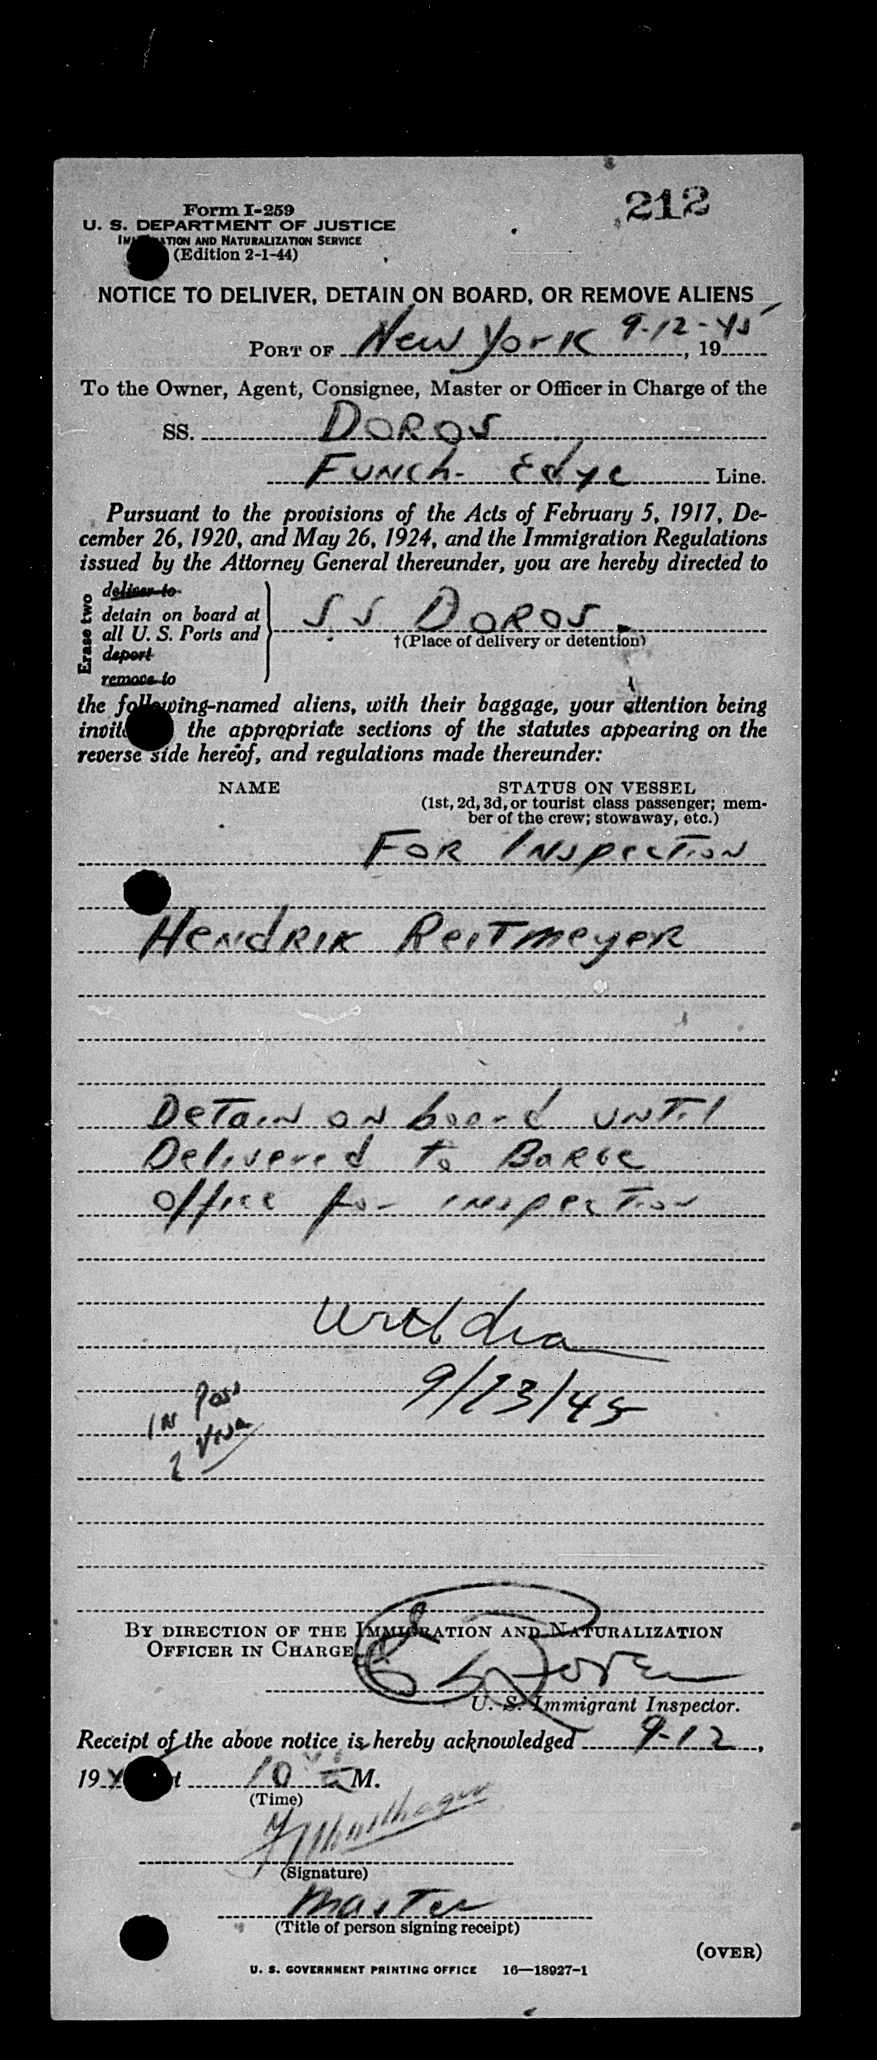 212
Form I-259
U. S. DEPARTMENT OF JUSTICE
IMMIGRATION AND NATURALIZATION SERVICE
(Edition 2-1-44)
NOTICE TO DELIVER, DETAIN ON BOARD, OR REMOVE ALIENS
PORT OF New York 9-12-45, 19
To the Owner, Agent, Consignee, Master or Officer in Charge of the
SS. DOROS
Funch-Edye Line.
Pursuant to the provisions of the Acts of February 5, 1917, De-
cember 26, 1920, and May 26, 1924, and the Immigration Regulations
issued by the Attorney General thereunder, you are hereby directed to
Erase two
deliver to
detain on board at
all U. S. Ports and
deport
remove to
SS DOROS
†(Place of delivery or detention)
the following-named aliens, with their baggage, your attention being
invited the appropriate sections of the statutes appearing on the
reverse side hereof, and regulations made thereunder:
NAME STATUS ON VESSEL
(1st, 2d, 3d, or tourist class passenger; mem-
ber of the crew; stowaway, etc.)
FOR INSPECTION
HENDRIK REITMEYER
Detain on board until
Delivered to Barge
Office for inspection
9/13/45
IN Pass
Visa
BY DIRECTION OF THE IMMIGRATION AND NATURALIZATION
OFFICER IN CHARGE
U. S. Immigrant Inspector.
Receipt of the above notice is hereby acknowledged 9-12,
19 at 10 M.
(Time)
(Signature)
Master
(Title of person signing receipt)
(OVER)
U. S. GOVERNMENT PRINTING OFFICE 16—18927-1